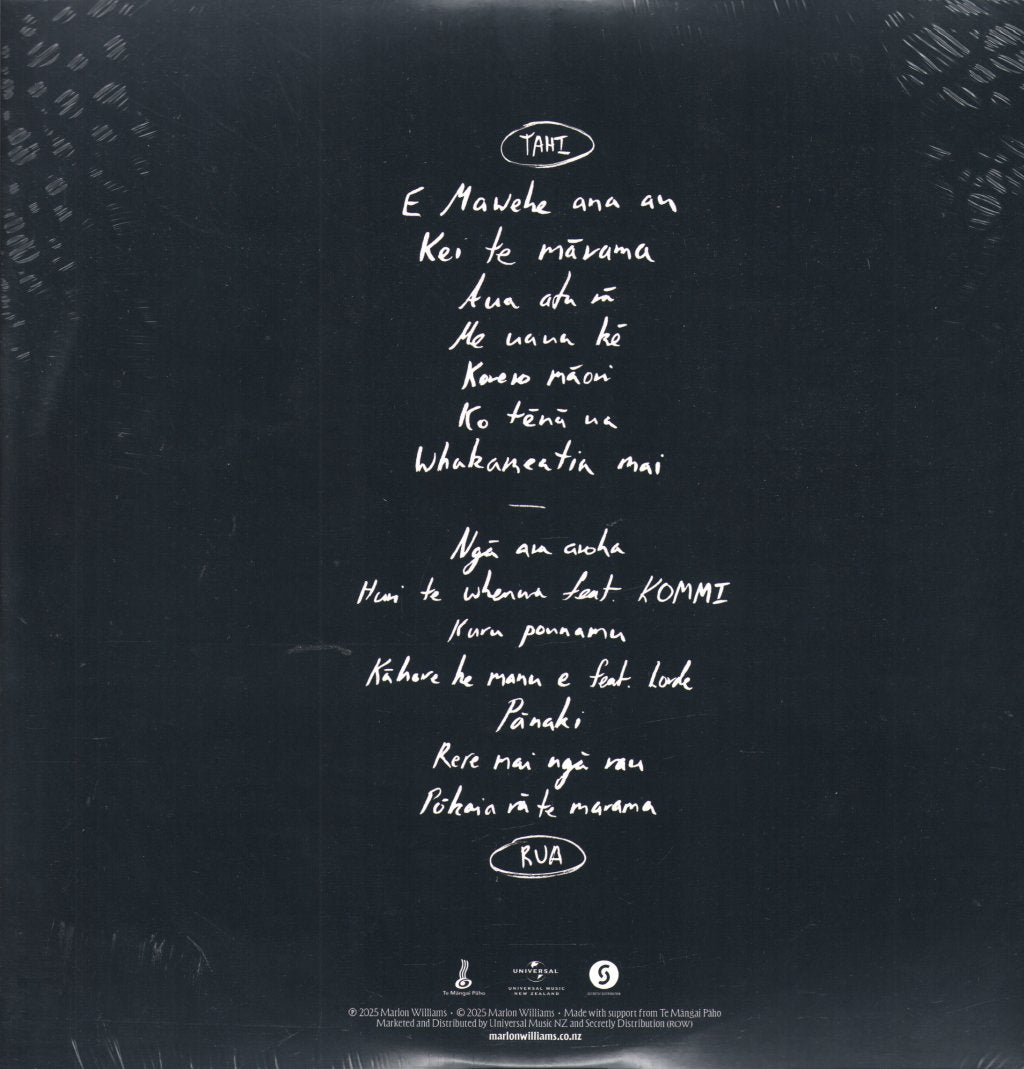 TAHI
E Mawehe ana au
Kei te mārama
Aua atu rā
Me uaua kē
Korero māori
Ko tēnā ua
Whakameatia mai
Ngā ara aroha
Huri te whenua feat. KOMMI
Kuru pounamu
Kāhore he manu e feat. Lorde
Pānaki
Rere mai ngā rau
Pōkaia rā te marama
RUA
Te Māngai Pāho
UNIVERSAL
UNIVERSAL MUSIC
NEW ZEALAND
SECRETLY DISTRIBUTION
℗ 2025 Marlon Williams • © 2025 Marlon Williams • Made with support from Te Māngai Pāho
Marketed and Distributed by Universal Music NZ and Secretly Distribution (ROW)
marlonwilliams.co.nz